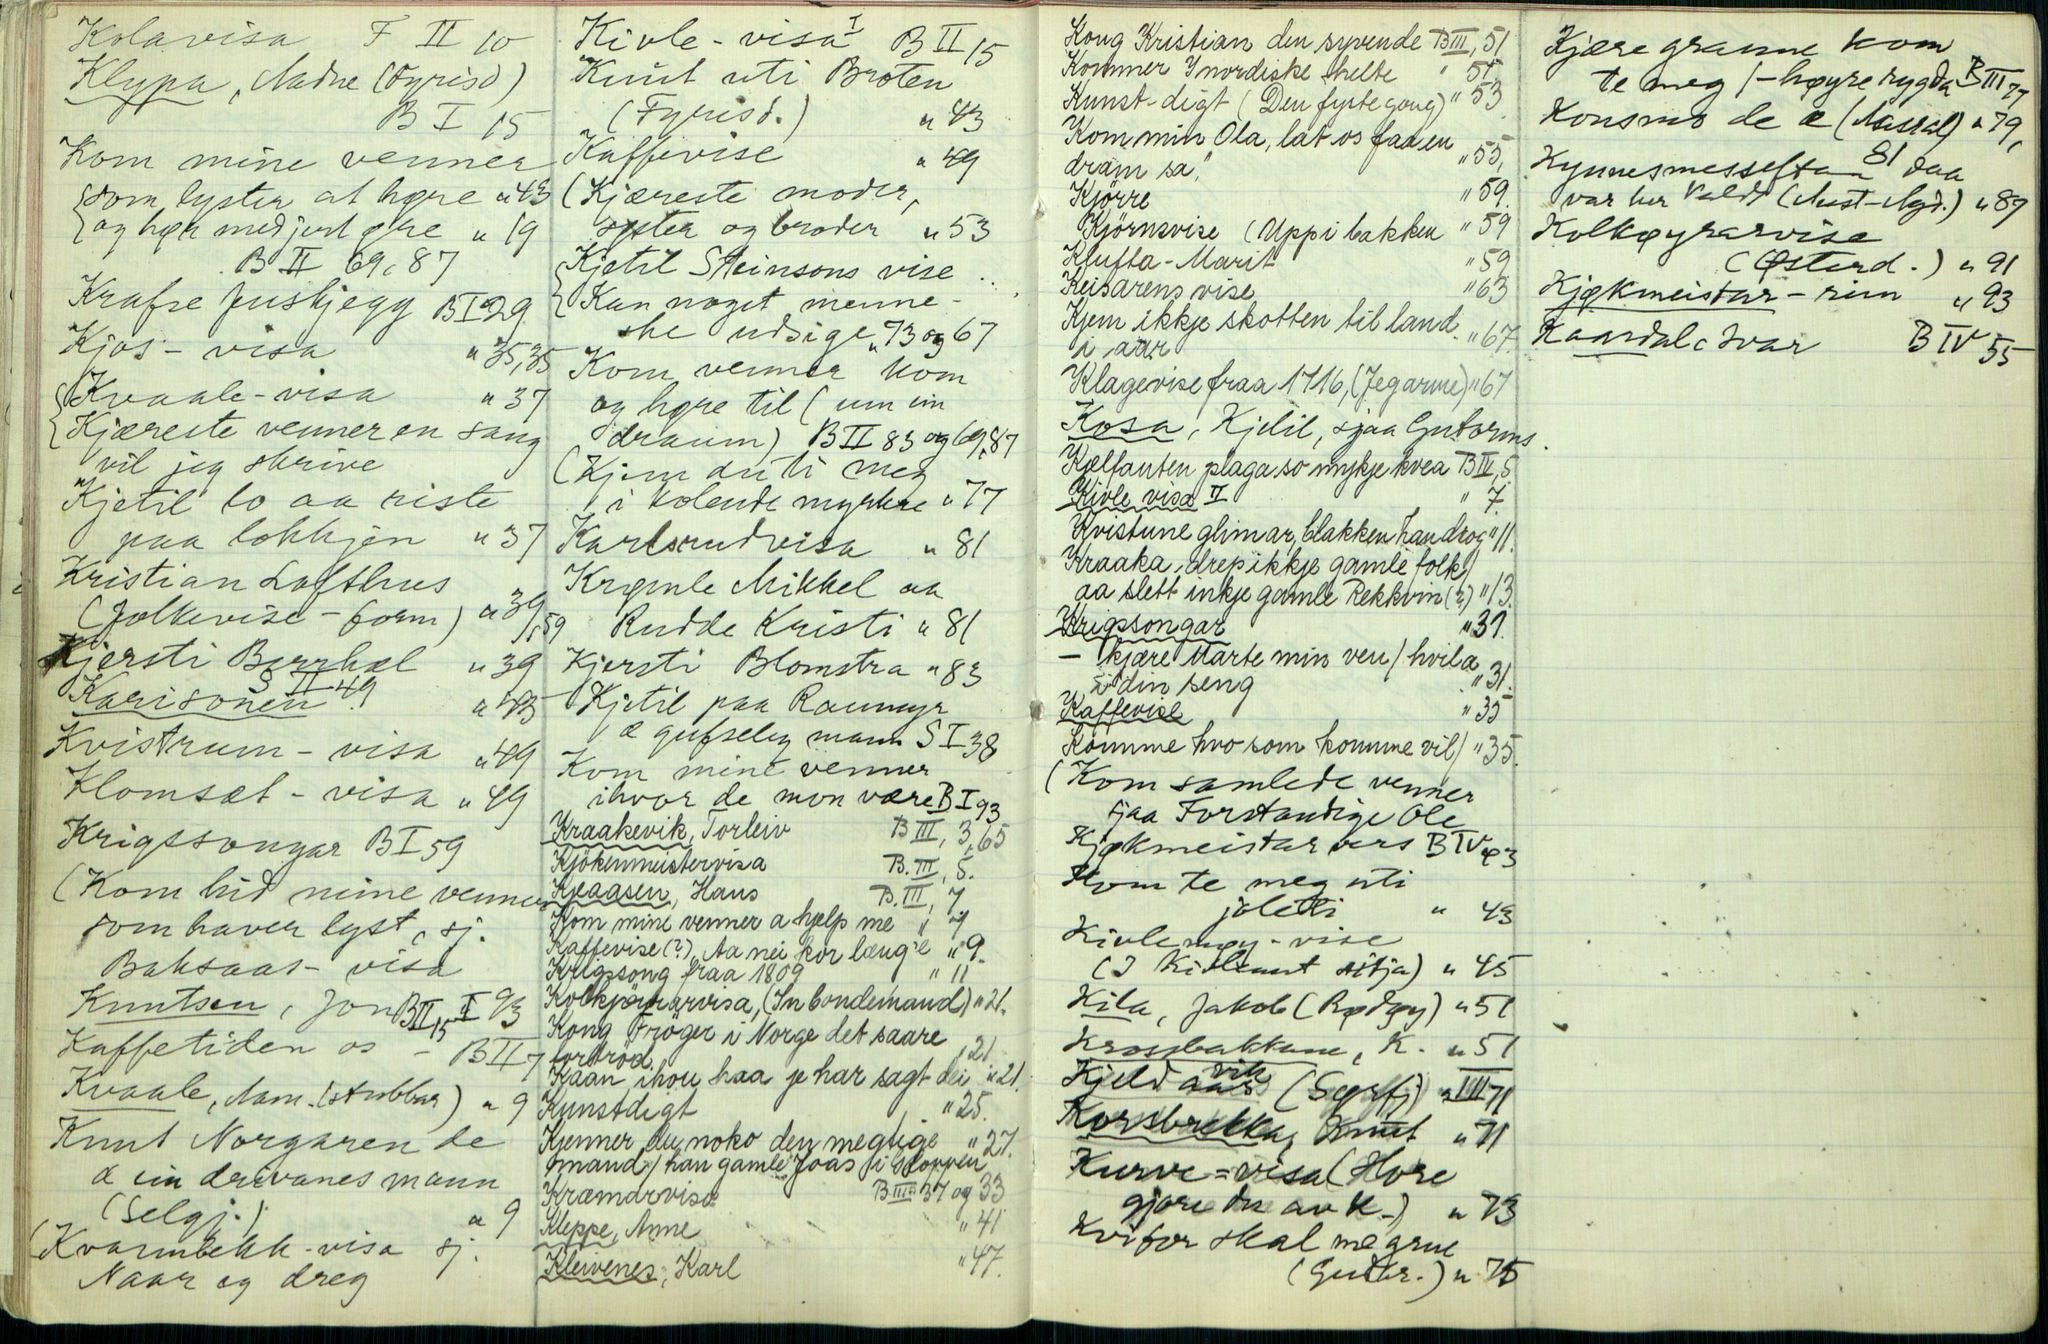 Kolavisa F II 10
Klypa, Aadne (Fyrisd)
B I 15
Kom mine venner
som lyster at høre " 43
og hør med jert øre " 19
B II 69, 87
Krafse Jusbjegg B I 29
Kjos-visa " 25, 35
Kvaale-visa " 37
Kjæreste venner en sang
vil jeg skrive
Kjetil lo aa riste
paa lokkjen " 37
Kristian Lofthus
(folkevise-form) " 39, 59
Kjersti Borrhæl " 39
S II 49
Karisonen " 43
Kvistrum-visa " 49
Klomsæt-visa " 49
Krigssongar B I 59
(Kom hid mine venner
som haver lyst, sj.
Baksaas-visa
Knutsen, Jon B II 15, I 93
Kaffetiden os - B II 7
Kvaale, Aam. (stubbar) " 9
Knut Norgaren de
æ ein drivanes mann
(Selgj.) " 9
(Kvarmbekk-visa sj.
Naar eg dreg
Kivle-visa I B II 15
Knut uti Broten
(Fyrisd.) " 43
Kaffevise " 49
(Kjæreste moder,
syster og broder " 53
Kjetil Steinsons vise
Kan noget menne-
ske udsige " 73 og 67
Kom venner kom
og høre til (um ein
draum) B II 83 og 69, 87
(Kjem du ti meg
i kolende myrkre " 77
Karlsrudvisa " 81
Krømle Mikkel aa
Rudde Kristi " 81
Kjersti Blomstra " 83
Kjetil paa Raumyr
æ gufseleg mann S I 38
Kom mine venner
ihvor de mon være B I 93
Kraakevik, Torleiv B III, 3, 65
Kjökenmeistervisa B. III, 5.
Kjeaasen, Hans B. III, 7
Kom mine venner a hjelp me " 7
Kaffevise (?) Aa nei kor længe " 9.
Krigssong fraa 1809 " 11
Kolkjöyrarvisa, (In bondemand) " 21.
Kong Fröger i Norge det saare
fortröd. " 21
Kaan ihou haa je har sagt dei " 21.
Kunstdigt " 25.
Kjenner du noko den megtige " 27.
mand / han gamle Joas i Gloppen
Kræmarvisa B III 37 og 33
Kleppe, Anne " 41
Kleivenes, Karl " 47.
Kong Kristian den syvende B III, 51
Kommer I nordiske helte " 51
Kunst-digt (Den fyrste gong) " 53
Kom min Ola, lat os faa en
dram sa," " 55,
Kjörre " 59.
Kjörnsvise (Upp i bakken " 59
Klufta-Marit " 59
Keisarens vise " 63
Kjem ikkje skotten til land
i aar " 67.
Klagevise fraa 1716, (Jeg arme) " 67
Kosa, Kjetil, sjaa Gutorms.
Kælfanten plaga so mykje kvea B IV, 5
Kivle visa II " 7.
Kvistune glimar, blakken han drog " 11.
Kraaka, drep ikkje gamle folk /
aa slett inkje gamle Rekkvin (?) " 13.
Krigssongar " 31.
- Kjære Marte min ven / hvil a
i din seng " 31.
Kaffevise " 35
Komme hvo som komme vil / " 35.
(Kom samlede venner
sjaa Forstandige Ole
Kjøkmeistarvers B IV 43
Kom te meg uti
joletti " 43
Kivlemøy-vise
(I Kivlemut sitja) " 45
Kila, Jakob (Rødøy) " 51
Krossbakkane, K. " 51
Kjeldaas vik (Sørfj) " III 71
Korsbrekka, Knut " 71
Kurve-visa (Hore
gjore du av K-) " 73
Kvifor skal me grue
(Gudbr.) " 75
Kjære granne kom
te meg / - høyre rygda B III 77
Konsmo de æ (Aaseral) " 79,
81
Kynnesmessefta daa
var her Valdt (Aust-Agd.) " 89
Kolkøyrarvise
(Østerd.) " 91
Kjøkmeistar-rim " 93
Kaardal, Ivar B IV 55